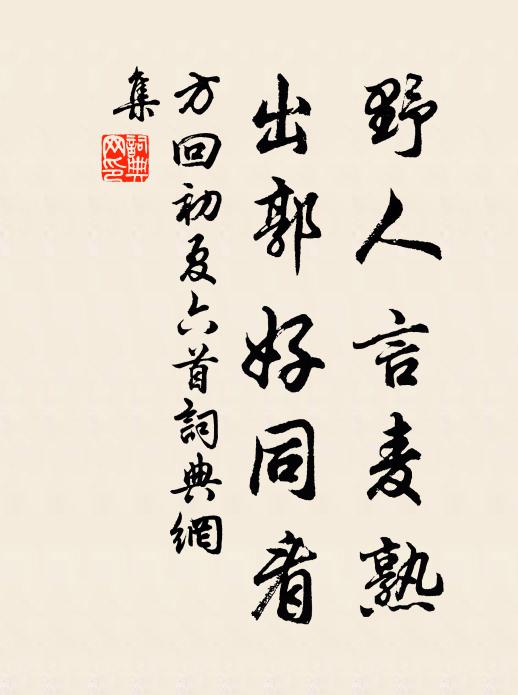 野人言麦熟
出郭好同看
方回初夏六首詞典網
集
詞典
网印